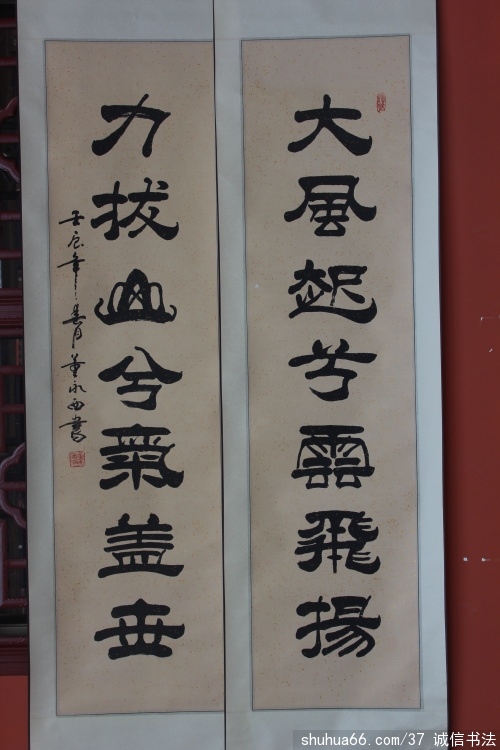 大風起兮雲飛揚
力拔山兮氣盖世
壬辰年春月董永西書
shuhua66.com/37 诚信书法